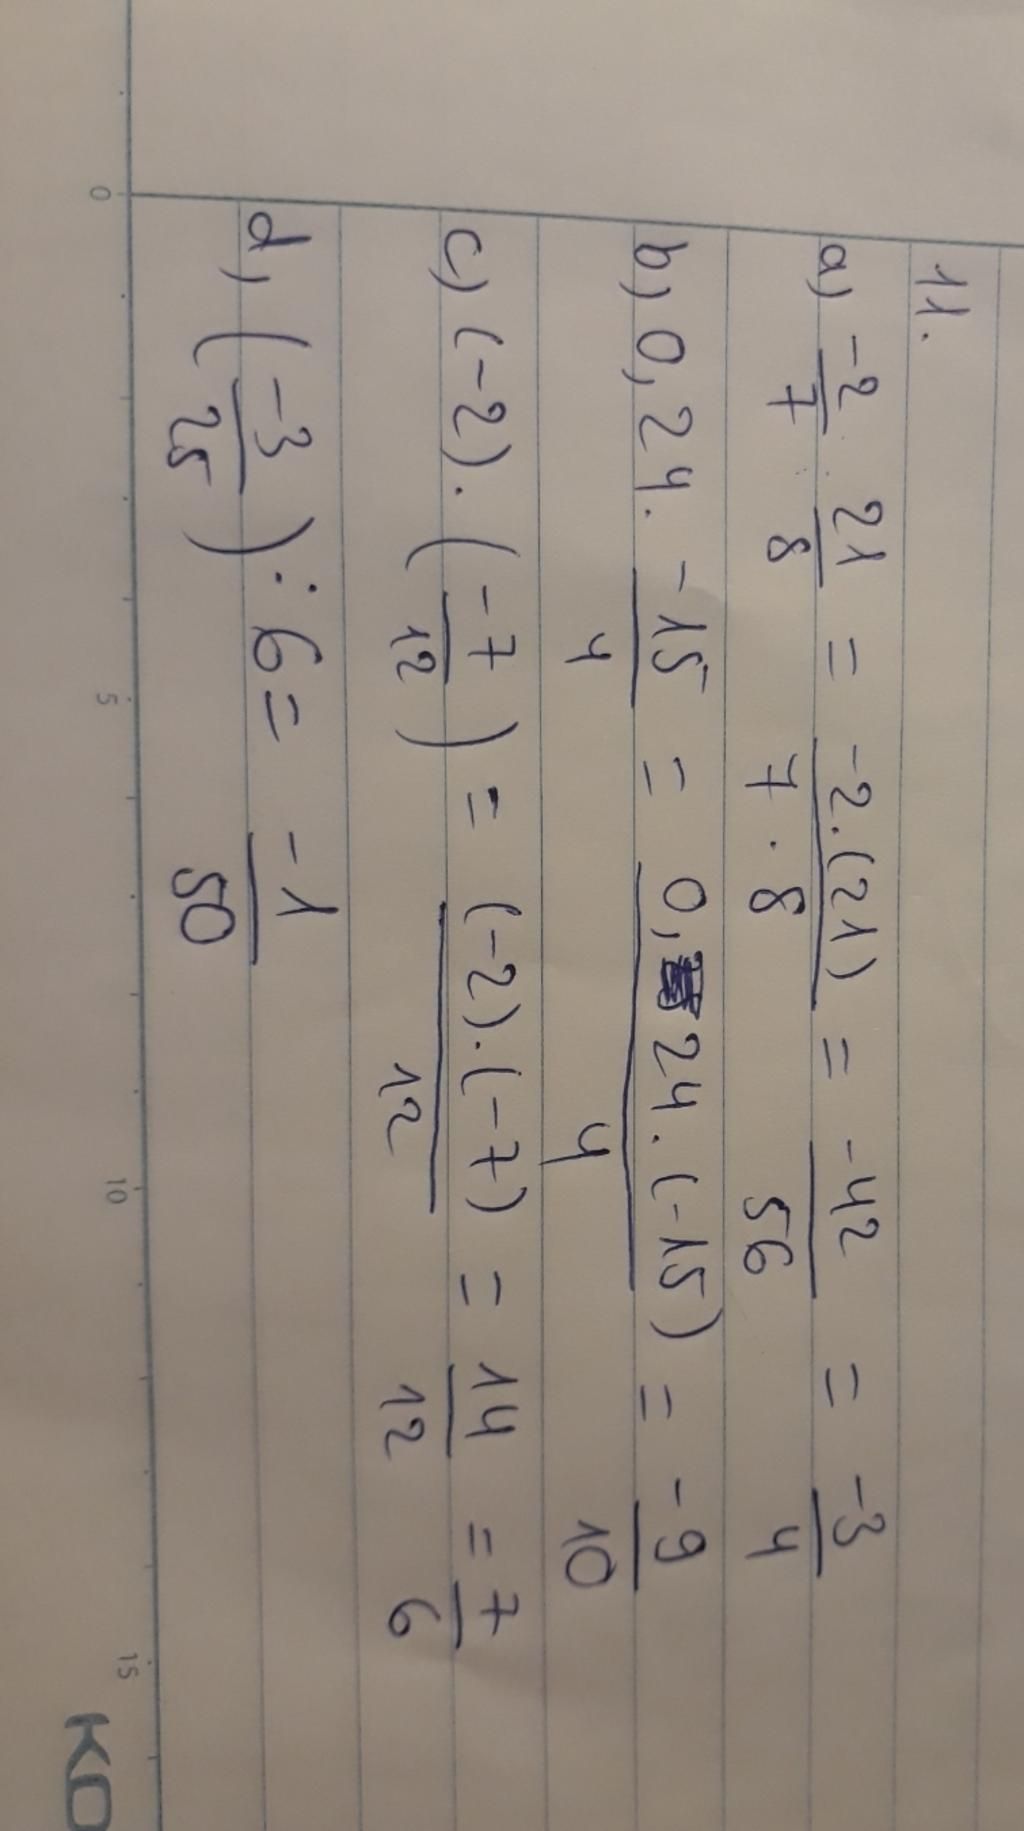 11.
a) -2/7 · 21/8 = -2.(21)/7 · 8 = -42/56 = -3/4
b) 0,24. -15/4 = 0,24.(-15)/4 = -9/10
c) (-2).(-7/12) = (-2).(-7)/12 = 14/12 = 7/6
d) (-3/25) : 6 = -1/50
0 5 10 15
KO